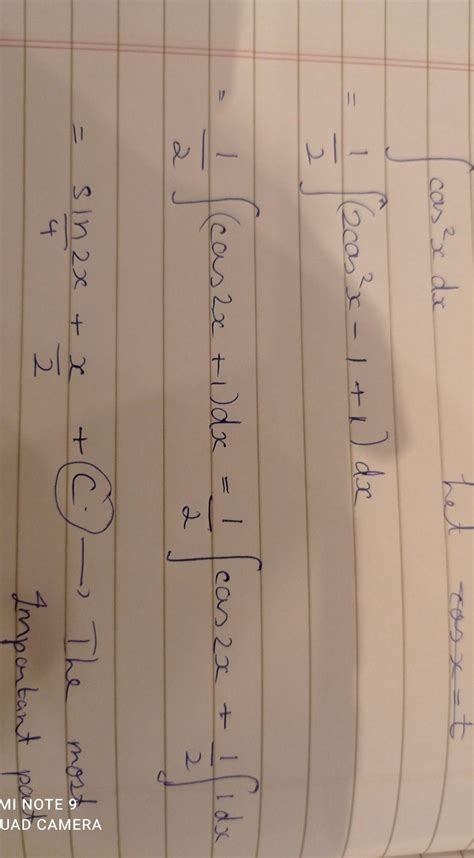 ∫cos²x dx   let cosx=t
= 1/2 ∫(2cos²x - 1 + 1) dx
= 1/2 ∫(cos2x + 1)dx = 1/2 ∫cos2x + 1/2 ∫1dx
= sin2x/4 + x/2 + C → The most
Important part
MI NOTE 9
UAD CAMERA